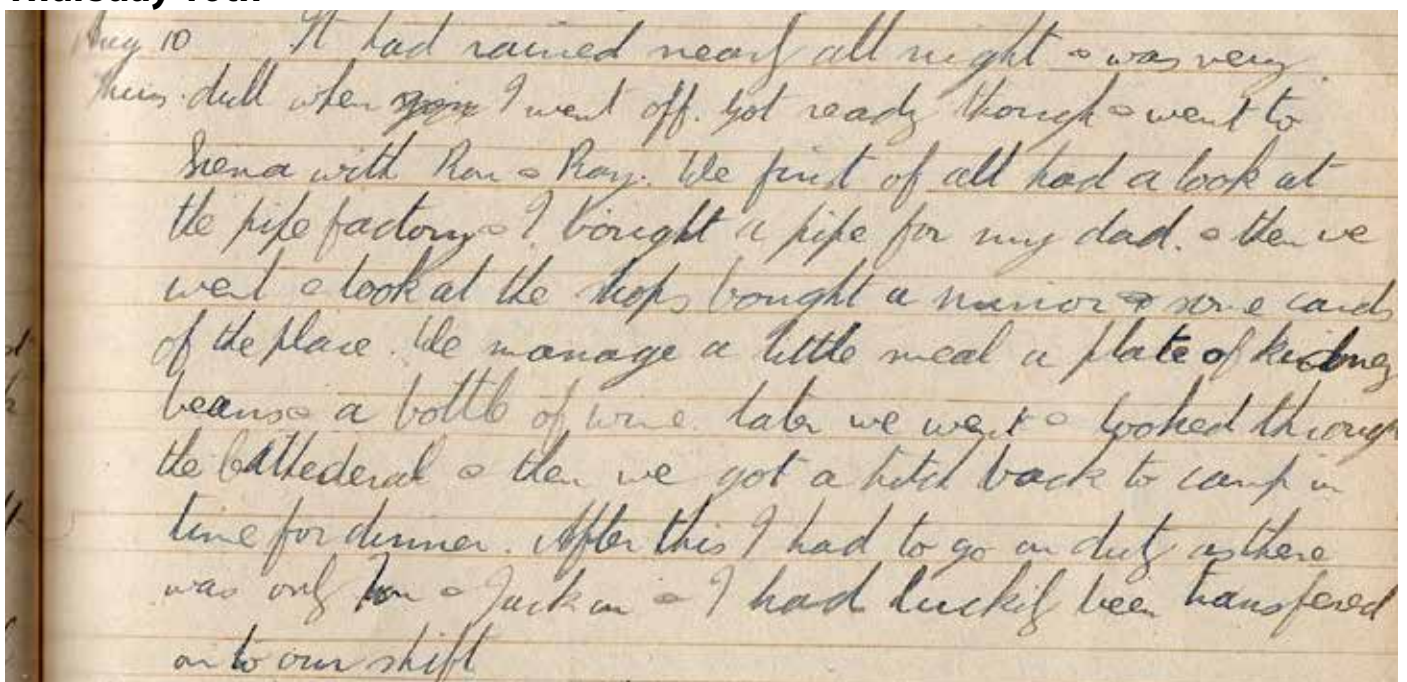 Thursday 10th
Aug 10 It had rained nearly all night & was very
Thurs. dull when I went off. Got ready though & went to
Siena with Ron & Ray. We first of all had a look at
the pipe factory & I bought a pipe for my dad. & then we
went & look at the shops bought a mirror & some cards
of the place. We manage a little meal a plate of kidney
beans & a bottle of wine. Later we went & looked through
the Cathederal & then we got a hitch back to camp in
time for dinner. After this I had to go on duty as there
was only & Jack in & I had luckily been transfered
on to our shift